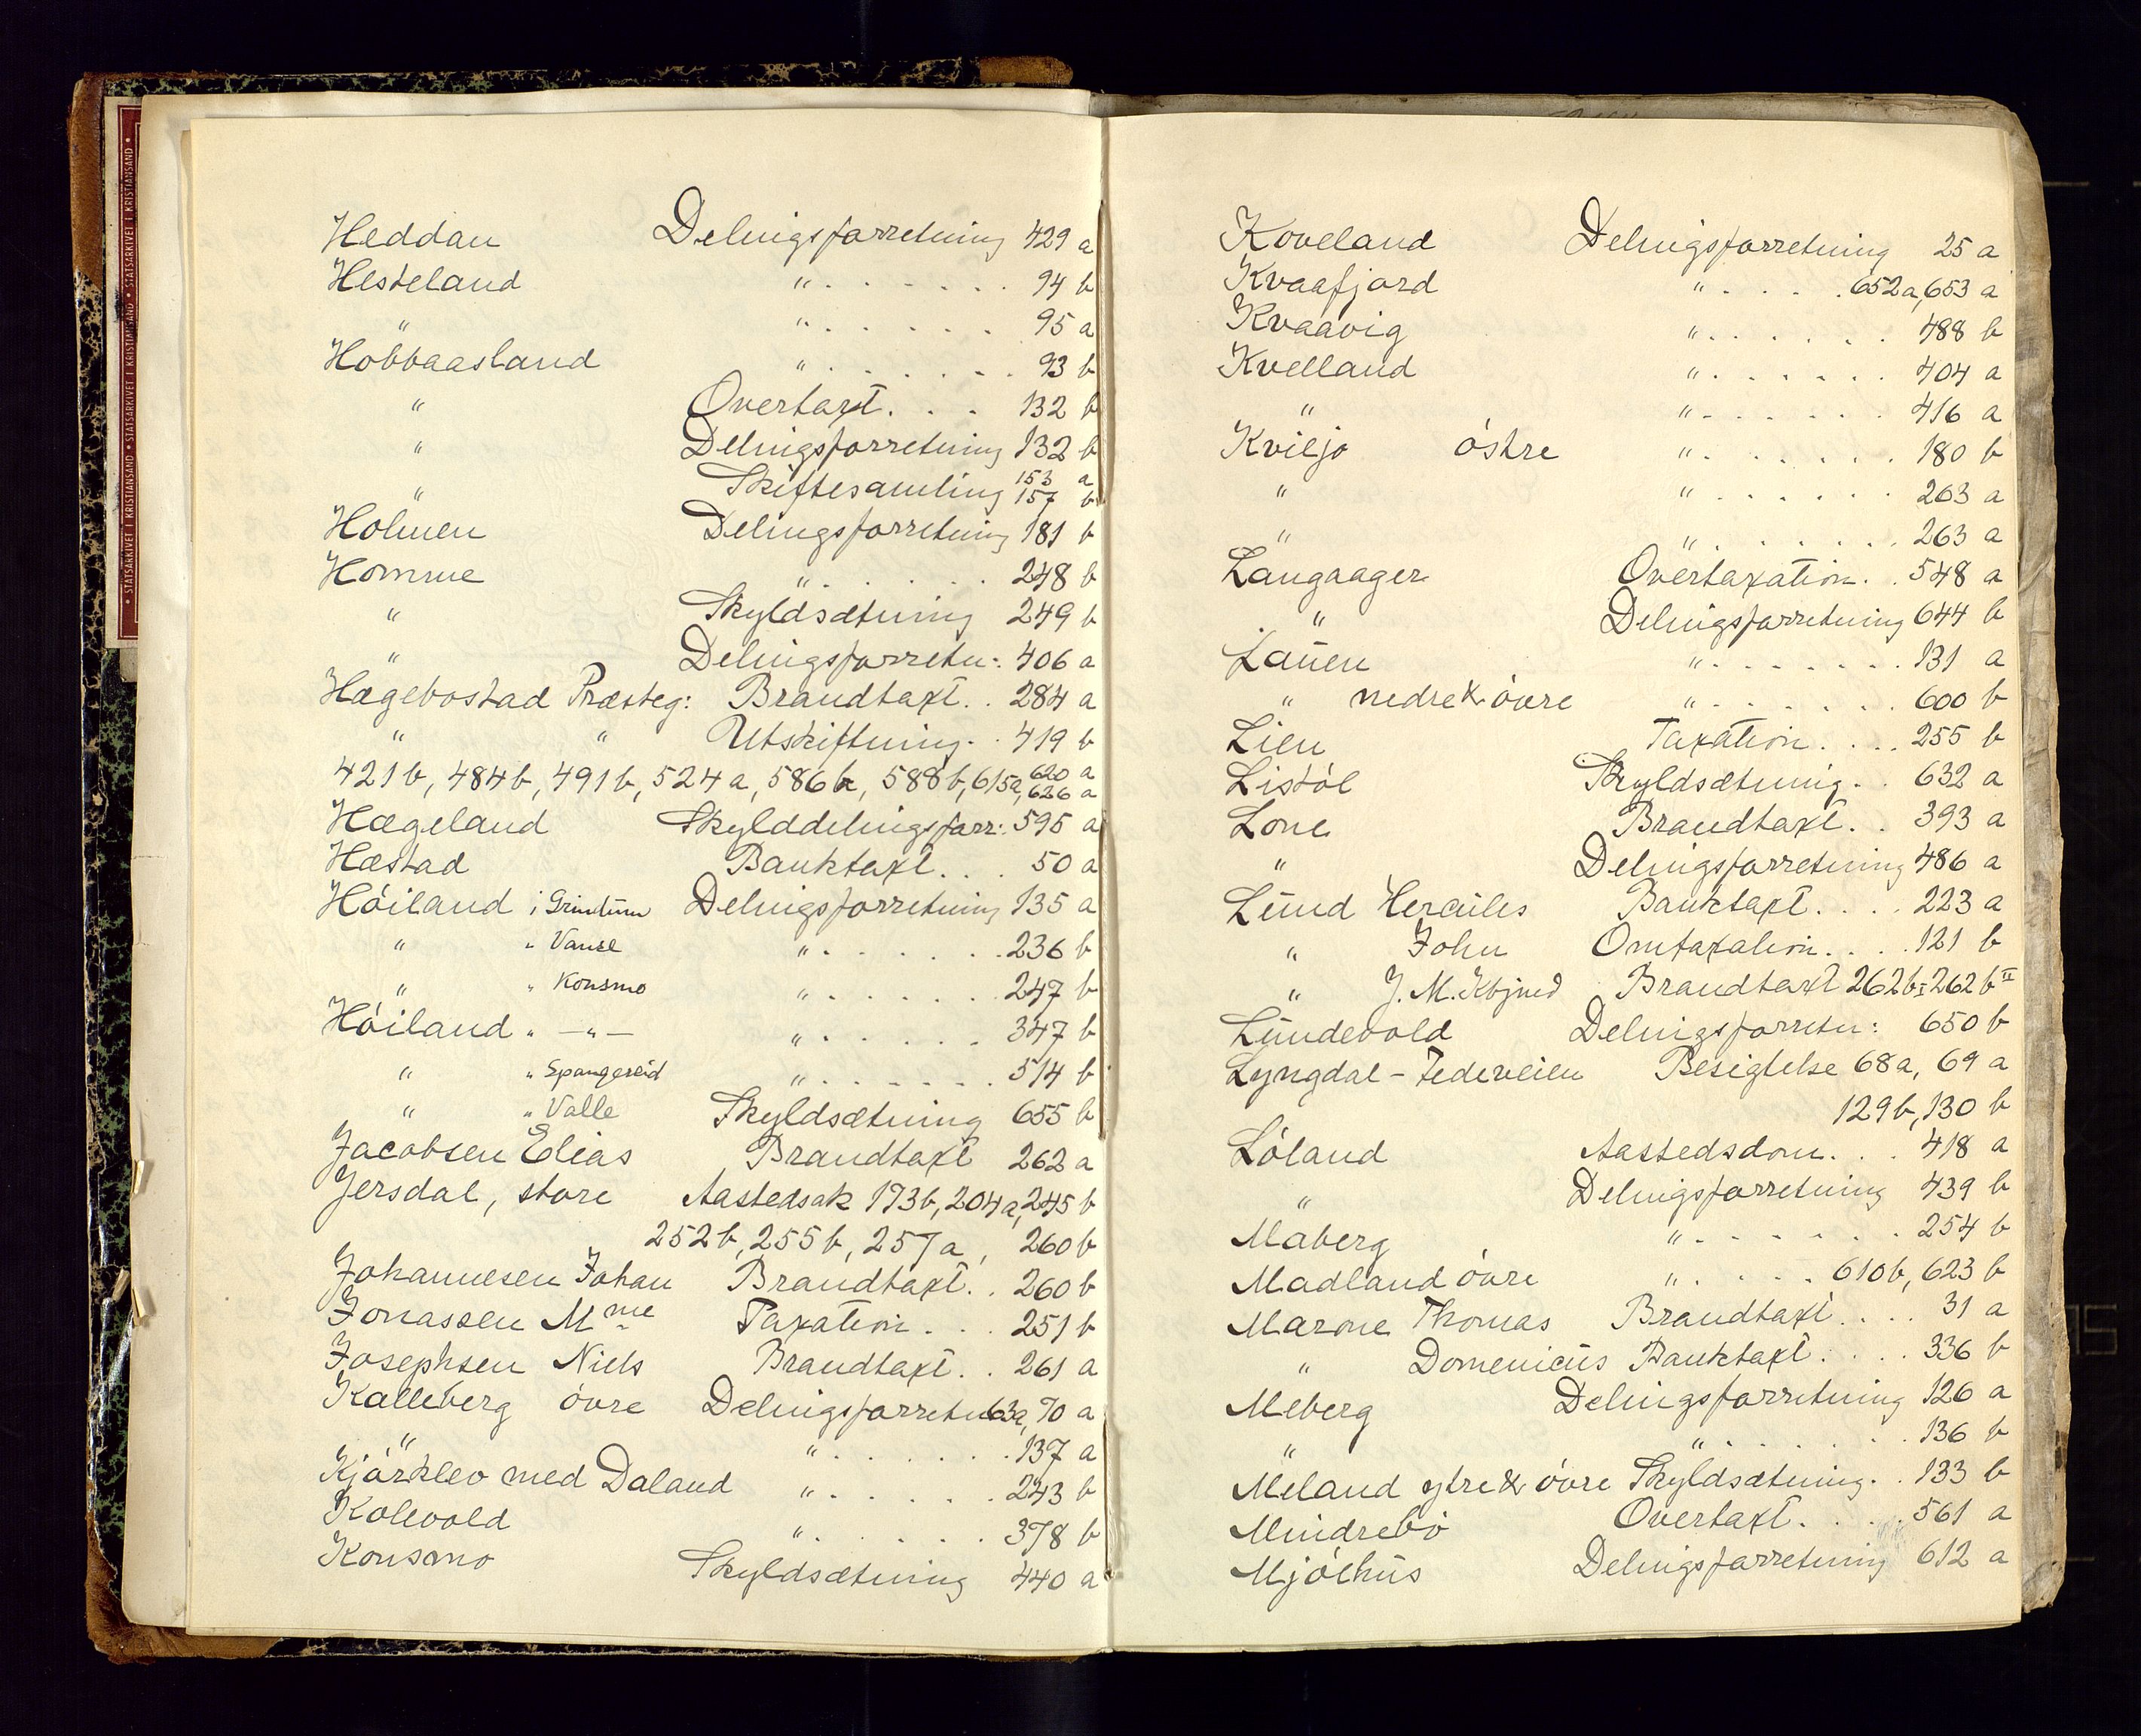 STATSARKIVET I KRISTIANSAND • STATSARKIVET I KRISTIANSAND • STATSARKIVET I KRISTIANSAND
Heddan Delingsforretning 429 a
Hesteland " . . . . . . . 94 b
" " . . . . . . 95 a
Hobbaasland " . . . . . . . 93 b
" Overtaxt. . . 132 b
" Delingsforretning 132 b
" Skiftesamling 153 a
157 b
Holmen Delingsforretning 181 b
Homme " . . . . . . 248 b
" Skyldsætning 249 b
" Delingsforretn: 406 a
Hægebostad Præsteg: Brandtaxt. . 284 a
" " Utskiftning. . 419 b
421 b, 484 b, 491 b, 524 a, 586 b, 588 b, 615 a, 620 a
626 a
Hægeland Skylddelingsforr: 595 a
Hæstad Banktaxt. . . 50 a
Höiland i Grindum Delingsforretning 135 a
" " Vanse " . . . . . . . 236 b
" " Konsmo " . . . . . . 247 b
Höiland " —"— " . . . . . . 347 b
" " Spangereid " . . . . . . . 514 b
" " Valle Skyldsætning 655 b
Jacobsen Elias Brandtaxt 262 a
Jersdal, store Aastedsak 193 b, 204 a, 245 b
252 b, 255 b, 257 a, 260 b
Johannesen Johan Brandtaxt. . 260 b
Jonassen Mme Taxation . . . 251 b
Josephsen Niels Brandtaxt. . 261 a
Kalleberg övre Delingsforretn 63a, 70 a
" " . . . . . . . 137 a
Kjörklev med Daland " . . . . . . 243 b
Kolevold " . . . . . . 378 b
Konsmo Skyldsætning 440 a
Koveland Delingsforretning 25 a
Kvaafjord " . . . . . 652 a, 653 a
Kvaavig " . . . . . . 488 b
Kvelland " . . . . . . 404 a
" " . . . . . . 416 a
Kviljo östre " . . . . . . . 180 b
" " . . . . . . 263 a
" " . . . . . . . 263 a
Langaager Overtaxation. . 548 a
" Delingsforretning 644 b
Lauen " . . . . . . . 131 a
" nedre & övre " . . . . . . 600 b
Lien Taxation. . . . 255 b
Listöl Skyldsætning. . 632 a
Lone Brandtaxt. . 393 a
" Delingsforretning 486 a
Lund Hercules Banktaxt. . . . 223 a
" John Omtaxation. . . . 121 b
" J. M. Kbjmd Brandtaxt 262 b I 262 b II
Lundevold Delingsforretn: 650 b
Lyngdal – Fedeveien Besigtelse 68 a, 69 a
129 b, 130 b
Löland Aastedsdom. . . 418 a
" Delingsforretning 439 b
Maberg " . . . . . . . 254 b
Madland övre " . . . . . 610 b, 623 b
Marone Thomas Brandtaxt. . . . 31 a
" Domenicus Banktaxt. . . . 336 b
Meberg Delingsforretning 126 a
" " . . . . . . 136 b
Meland ytre & övre Skyldsætning. . 133 b
Mindrebö Overtaxt. . . . 561 a
Mjölhus Delingsforretning 612 a